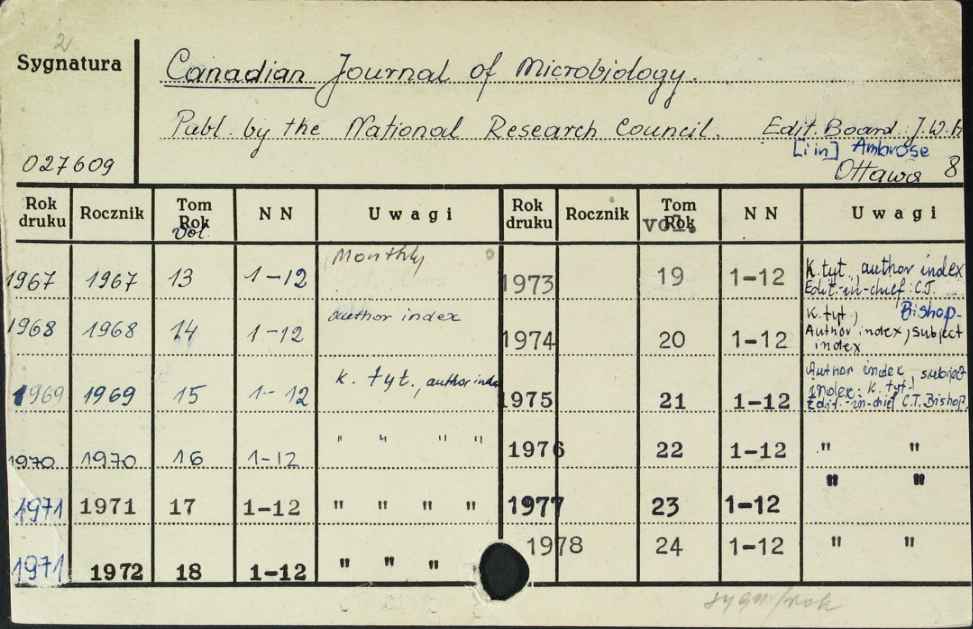 2
Sygnatura
Canadian Journal of Microbiology.
Publ. by the National Research Council. Edit. Board: J.W.H
[i in] Ambrose
027609
Ottawa 8
Rok druku Rocznik Tom Rok Vol N N Uwagi Rok druku Rocznik Tom Rok vol. N N Uwagi
1967 1967 13 1-12 Monthly 1973 19 1-12 K. tyt., author index Edit.-in-chief: C.T. Bishop
1968 1968 14 1-12 author index 1974 20 1-12 K. tyt., Author index, subject index
1969 1969 15 1-12 K. tyt., author index 1975 21 1-12 Author index, subject index. K. tyt. Edit.-in-chief C.T. Bishop
1970 1970 16 1-12 " " " " 1976 22 1-12 " "
1971 1971 17 1-12 " " " " 1977 23 1-12 " "
1971 1972 18 1-12 " " " 1978 24 1-12 " "
sygn/rok